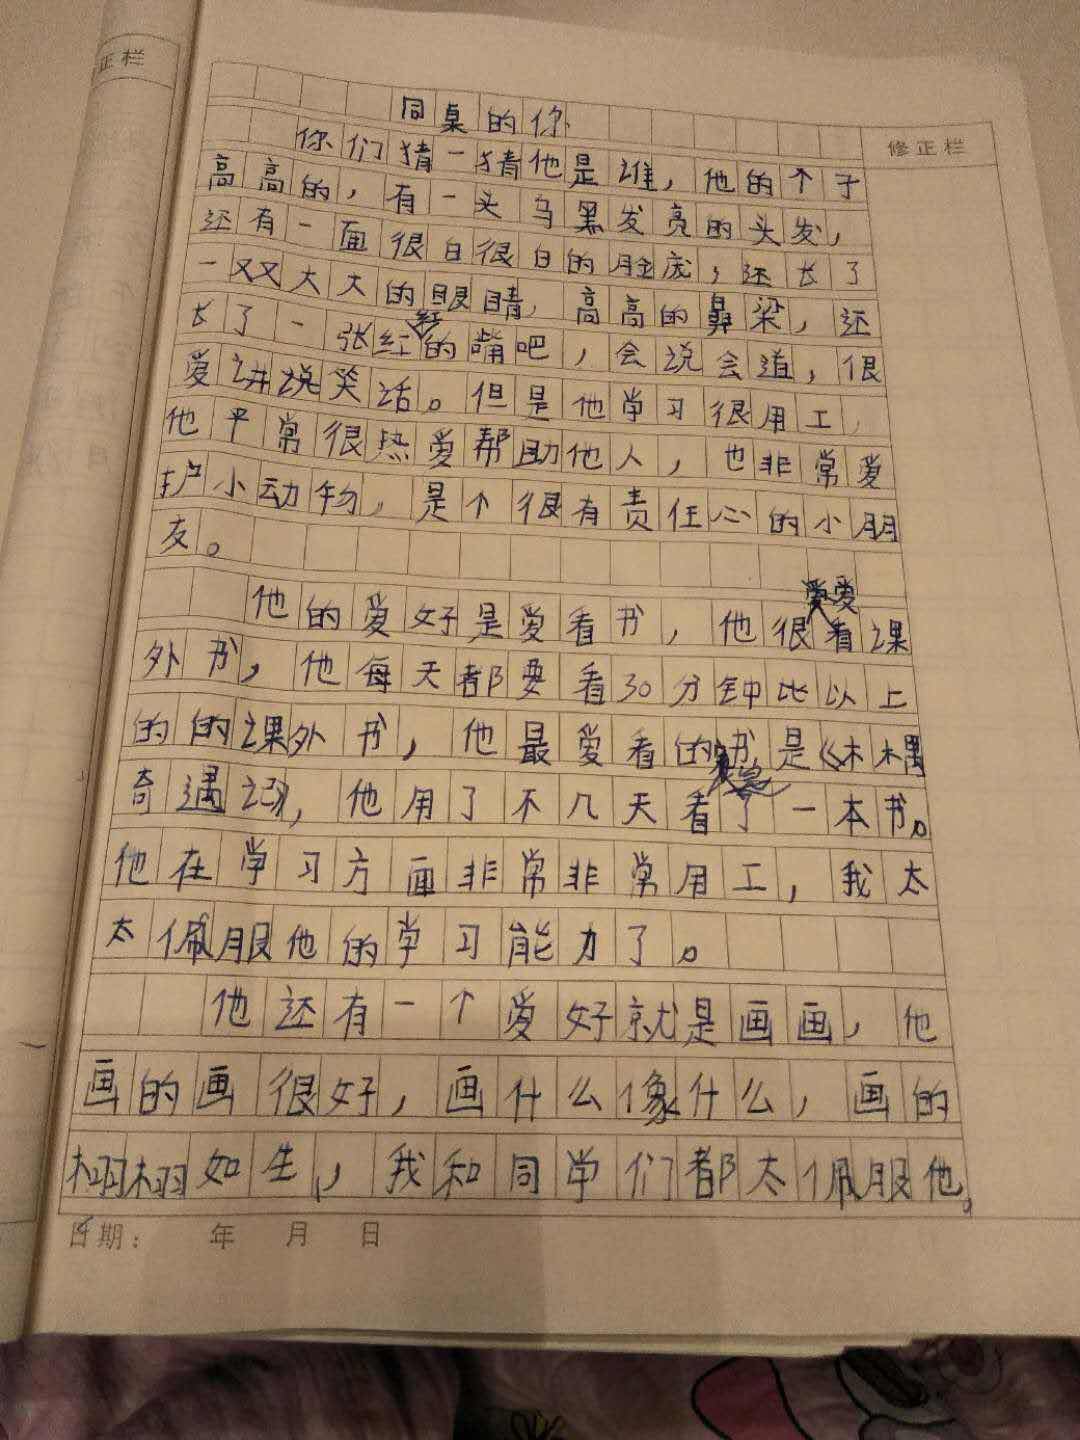 正栏
修正栏
同桌的你
你们猜一猜他是谁，他的个子
高高的，有一头乌黑发亮的头发，
还有一面很白很白的脸庞，还长了
一双又大大的眼睛，高高的鼻梁，还
长了一张红红的嘴吧，会说会道，很
爱讲说笑话。但是他学习很用工，
他平常很热爱帮助他人，也非常爱
护小动物，是个很有责任心的小朋
友。
他的爱好是爱看书，他很爱看课
外书，他每天都要看30分钟比以上
的的课外书，他最爱看的书是《木偶
奇遇记》，他用了不几天看了一本书。
他在学习方面非常非常用工，我太
太佩服他的学习能力了。
他还有一个爱好就是画画，他
画的画很好，画什么像什么，画的
栩栩如生，我和同学们都太佩服他。
日期： 年 月 日